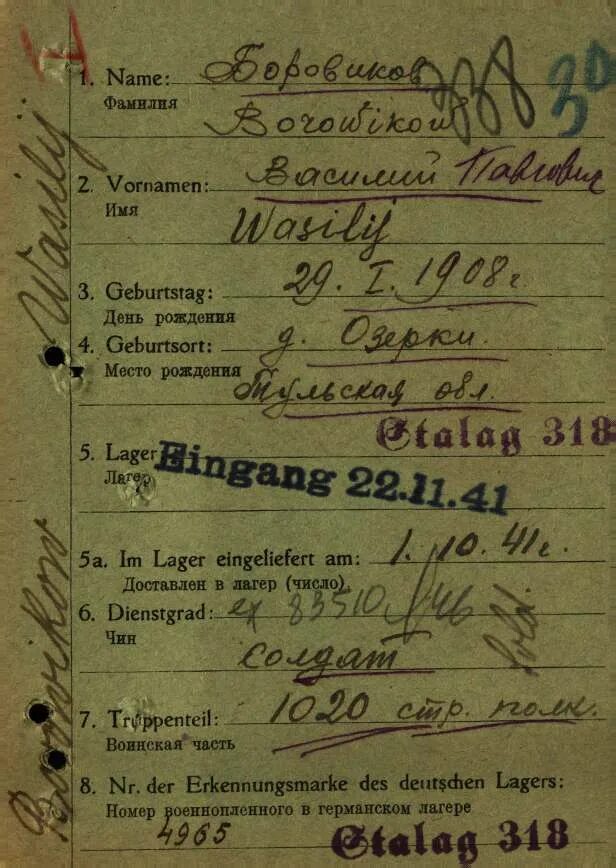 1. Name: Боровиков
Фамилия
30
2. Vornamen: Василий Павлович
Имя
Wasilij
3. Geburtstag: 29. I. 1908 г
День рождения
4. Geburtsort: д. Озерки.
Место рождения
Тульская обл.
Stalag 318
5. Lager
Лагер
Eingang 22.11.41
5a. Im Lager eingeliefert am: 1. 10. 41 г.
Доставлен в лагер (число)
6. Dienstgrad:
Чин
солдат
Sold.
7. Truppenteil: 1020 стр. полк.
Воинская часть
8. Nr. der Erkennungsmarke des deutschen Lagers:
Номер военнопленного в германском лагере
4965
Stalag 318
Borovikow Wasilij